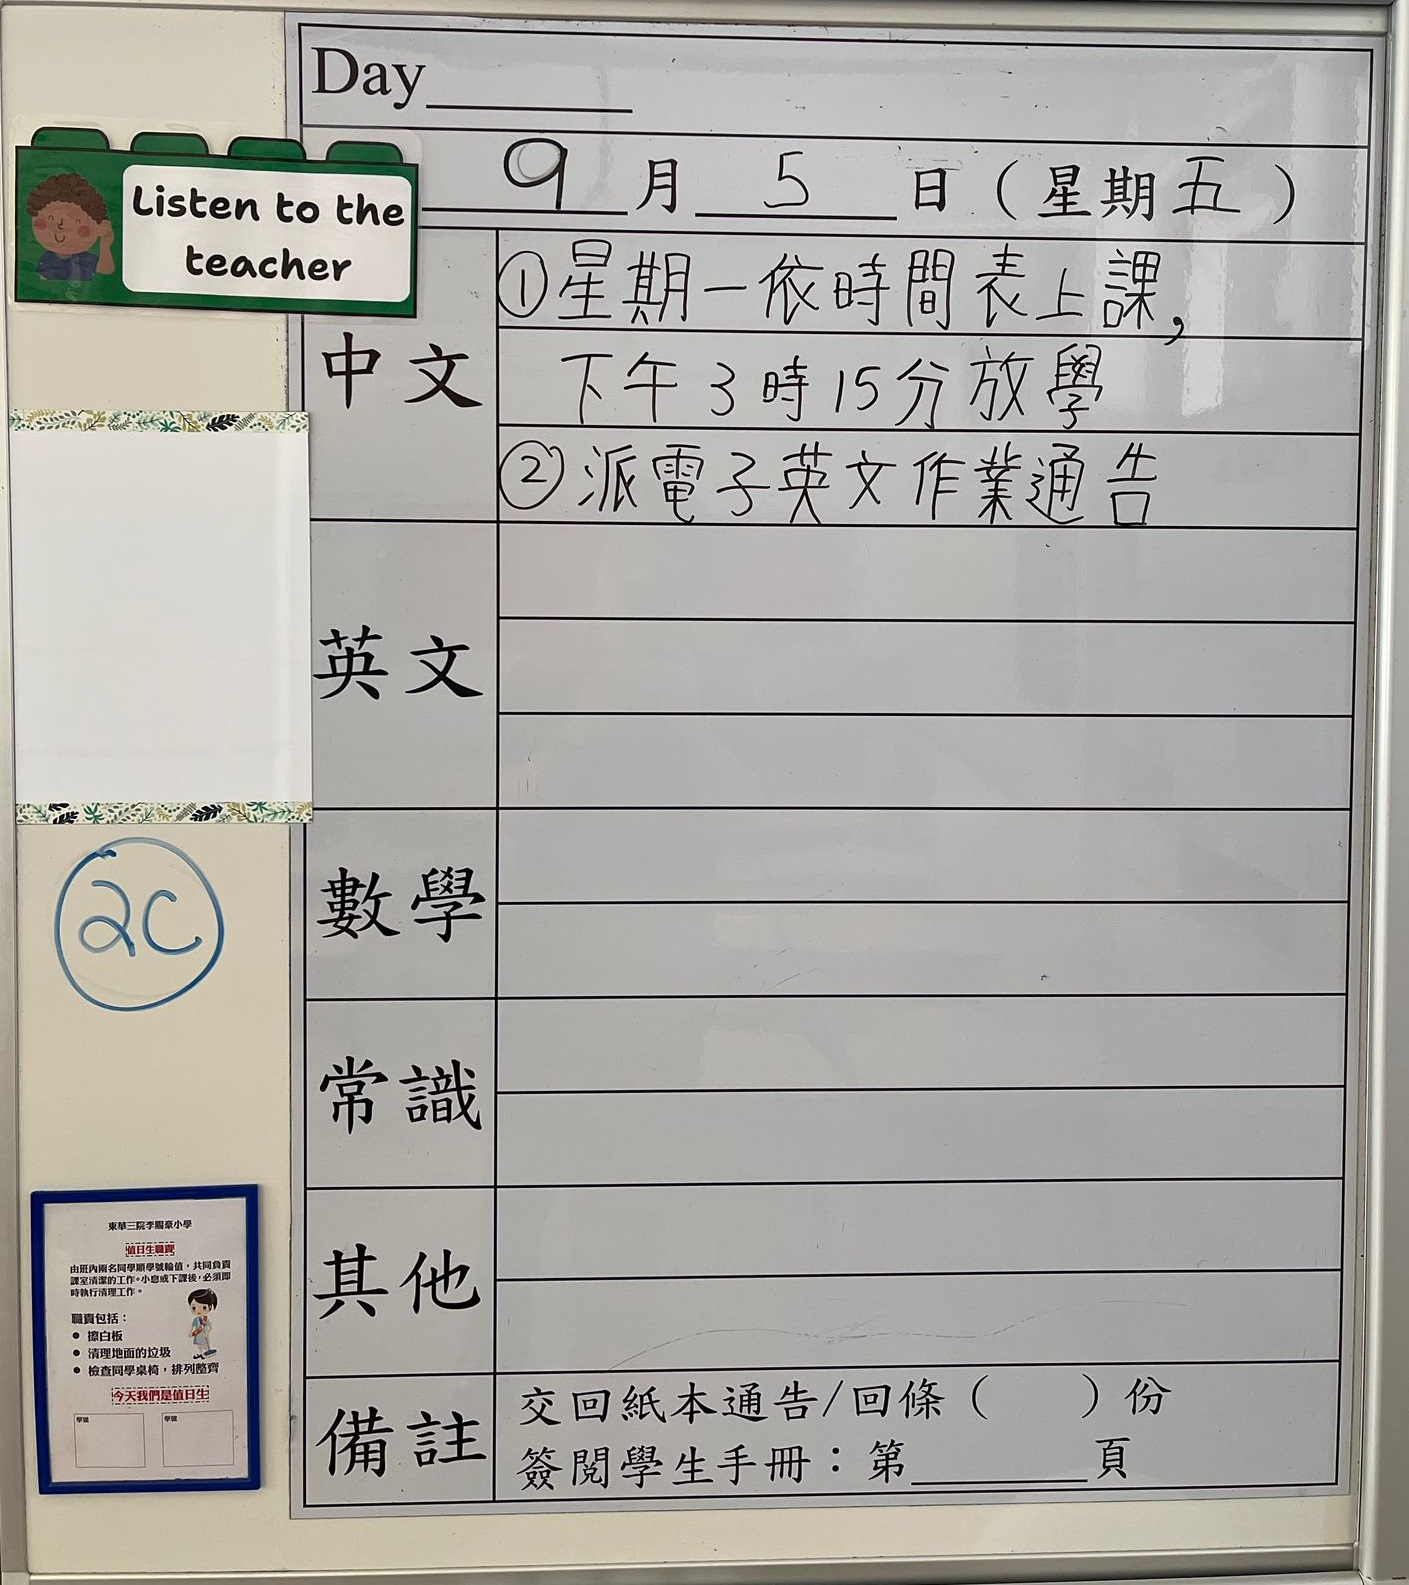 Day
Listen to the
teacher
9月5日（星期五）
中文
①星期一依時間表上課,
下午3時15分放學
②派電子英文作業通告
英文
數學
2C
常識
其他
備註
交回紙本通告/回條（　　）份
簽閱學生手冊：第______頁
東華三院李賜豪小學
值日生職責
由班內兩名同學順學號輪值，共同負責
課室清潔的工作。小息或下課後，必須即
時執行清理工作。
職責包括：
● 擦白板
● 清理地面的垃圾
● 檢查同學桌椅，排列整齊
今天我們是值日生
學號
學號